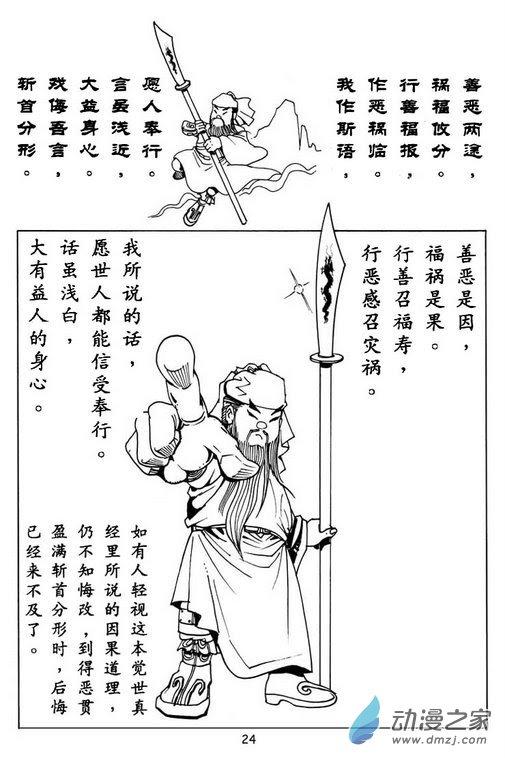 善恶两途，
祸福攸分。
行善福报，
作恶祸临。
我作斯语，
愿人奉行。
言虽浅近，
大益身心。
戏侮吾言，
斩首分形。
善恶是因，
福祸是果。
行善召福寿，
行恶感召灾祸。
我所说的话，
愿世人都能信受奉行。
话虽浅白，
大有益人的身心。
如有人轻视这本觉世真
经里所说的因果道理，
仍不知悔改，到得恶贯
盈满斩首分形时，后悔
已经来不及了。
24
动漫之家
www.dmzj.com